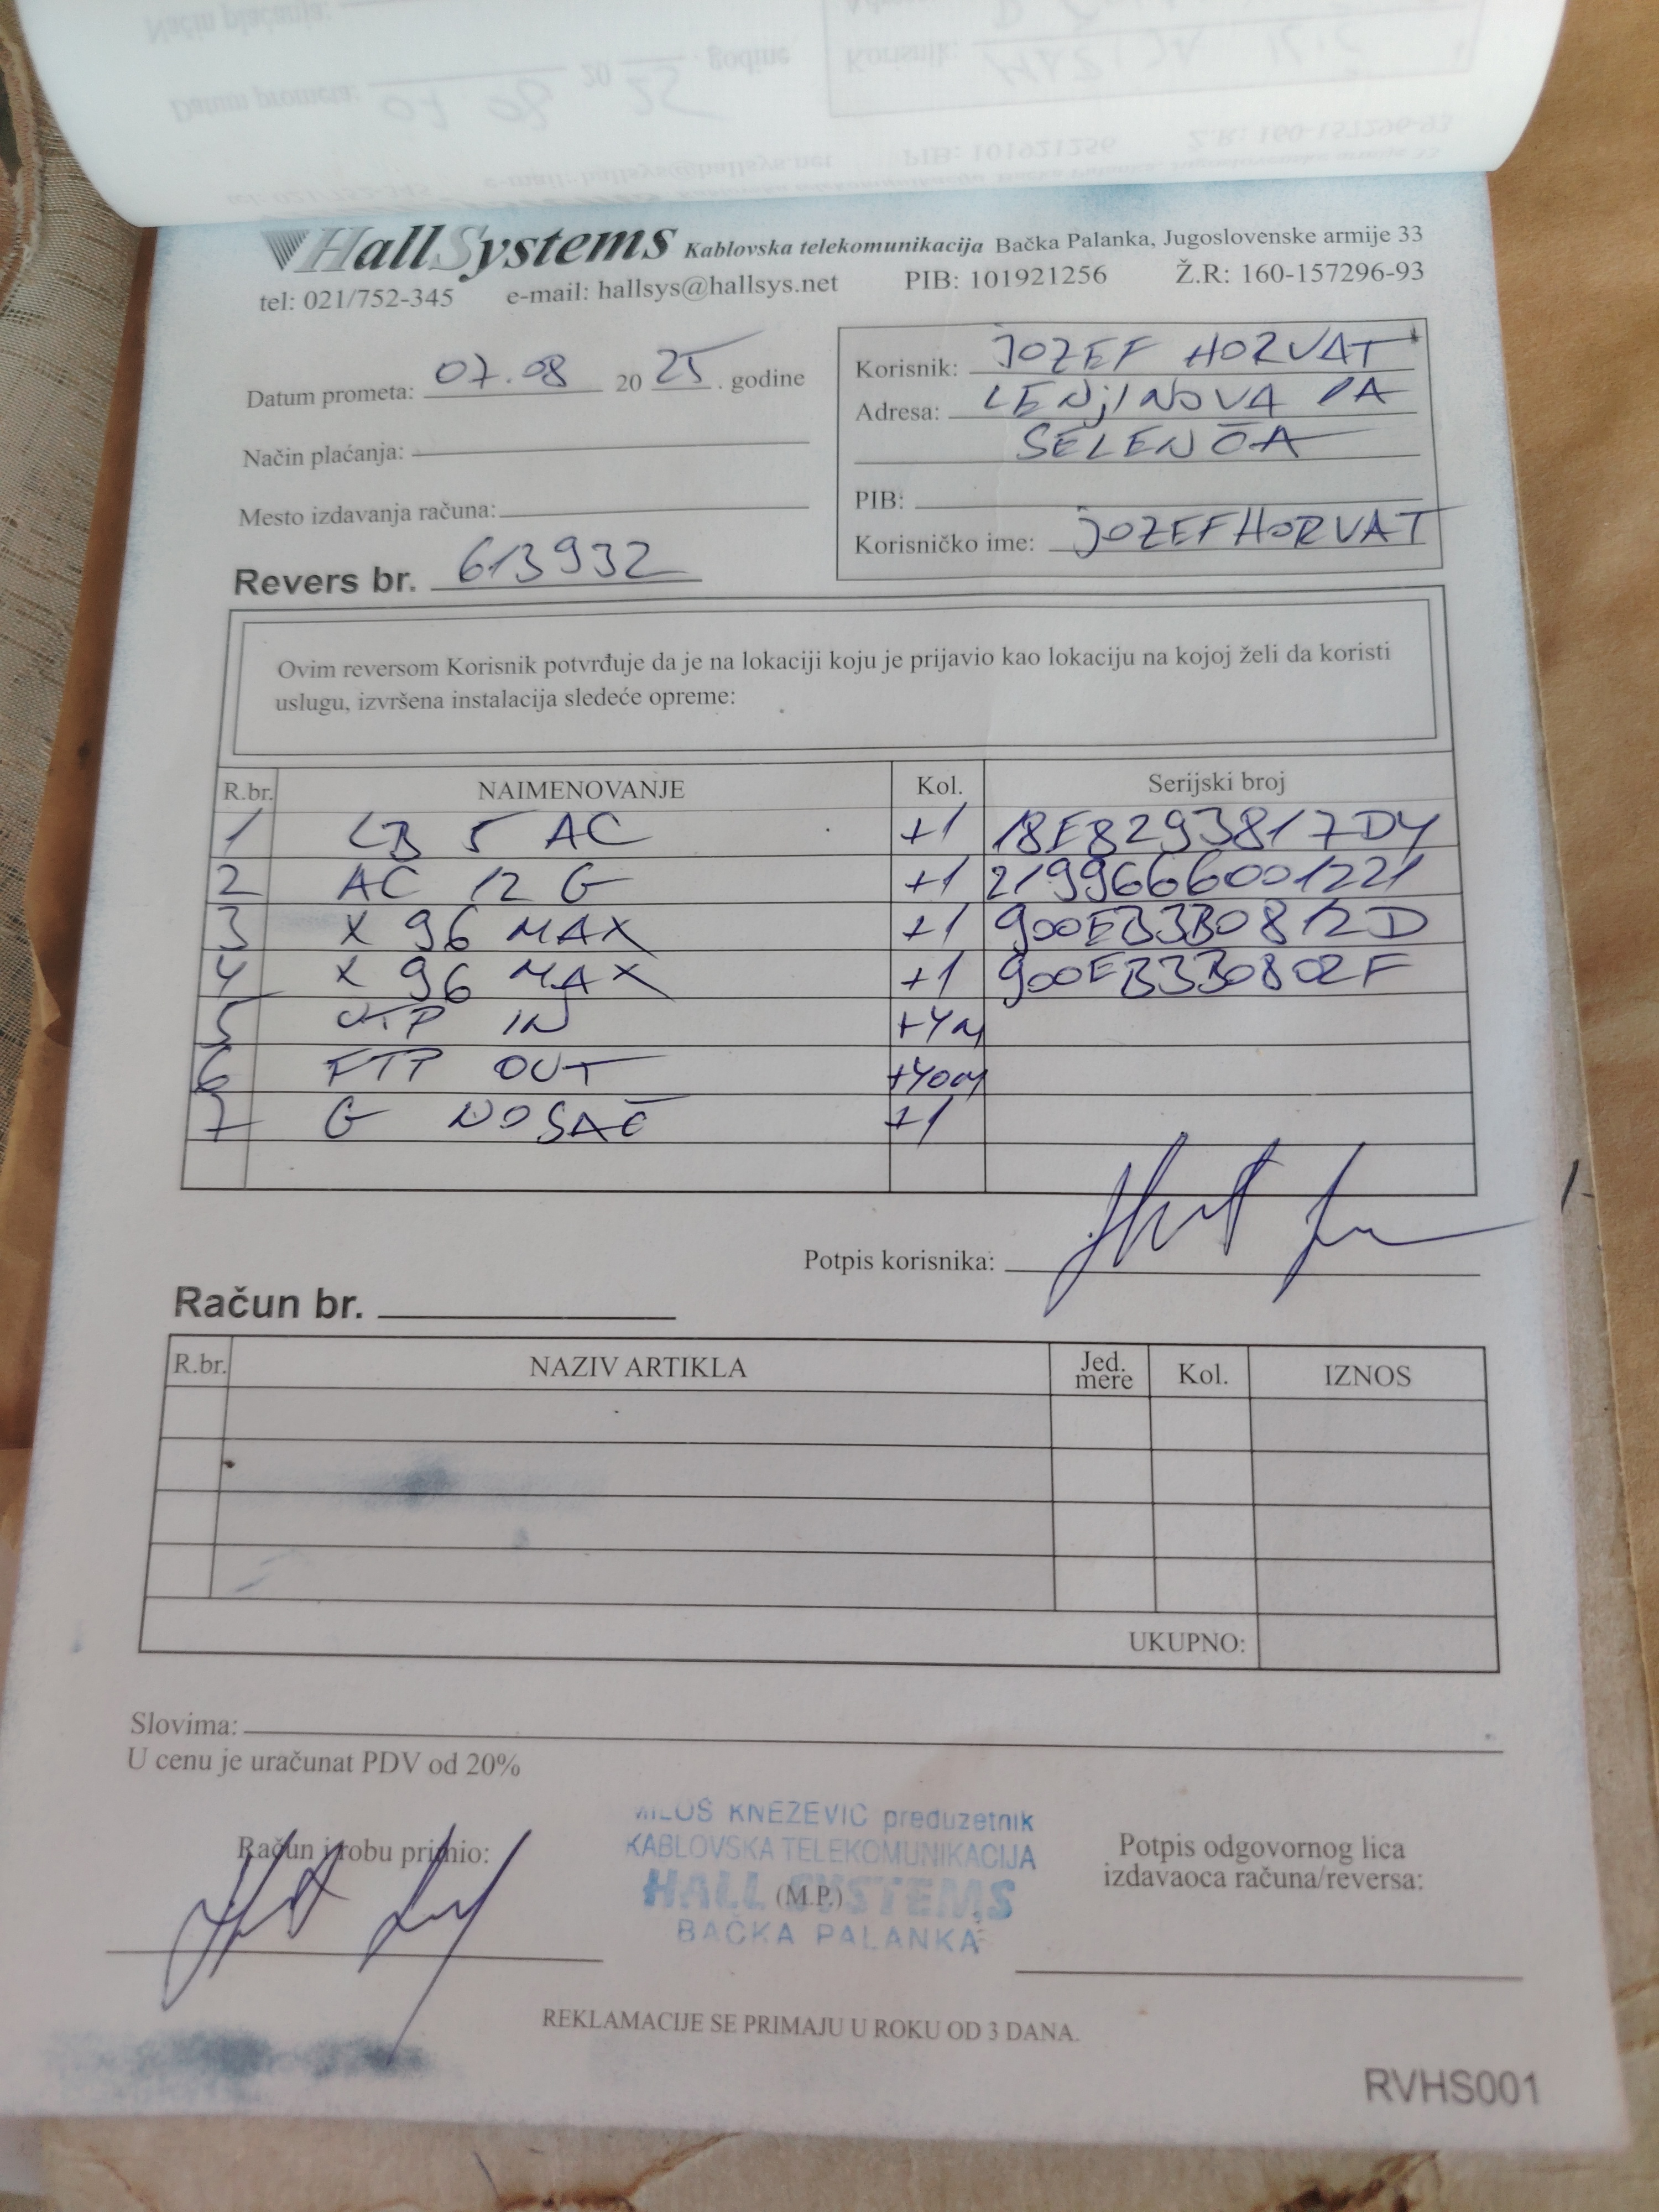 HallSystems Kablovska telekomunikacija Bačka Palanka, Jugoslovenske armije 33
tel: 021/752-345 e-mail: hallsys@hallsys.net PIB: 101921256 Ž.R: 160-157296-93
Datum prometa: 07.08 2025. godine
Način plaćanja:
Mesto izdavanja računa:
Revers br. 613932
Korisnik: JOZEF HORVAT
Adresa: LENJINOVA
SELENČA
PIB:
Korisničko ime: JOZEFHORVAT
Ovim reversom Korisnik potvrđuje da je na lokaciji koju je prijavio kao lokaciju na kojoj želi da koristi
uslugu, izvršena instalacija sledeće opreme:
R.br. NAIMENOVANJE Kol. Serijski broj
1 LB 5 AC +1 18E8293817DY
2 AC 12 G +1 2199666001221
3 X 96 MAX +1 900EB3B0812D
4 X 96 MAX +1 900EB3B0802F
5 UTP IN +4m
6 FTP OUT +40m
7 G NOSAČ +1
Potpis korisnika:
Račun br.
R.br. NAZIV ARTIKLA Jed. mere Kol. IZNOS
UKUPNO:
Slovima:
U cenu je uračunat PDV od 20%
Račun i robu primio:
MILOŠ KNEŽEVIĆ preduzetnik
KABLOVSKA TELEKOMUNIKACIJA
HALL SYSTEMS
(M.P.)
BAČKA PALANKA
Potpis odgovornog lica
izdavaoca računa/reversa:
REKLAMACIJE SE PRIMAJU U ROKU OD 3 DANA.
RVHS001